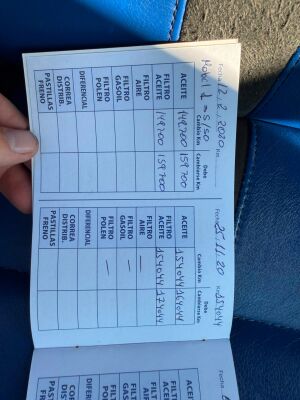 Fecha 12, 2, 2020 Km
Mobil 1 = 5/50
Cambio Km Debe Cambiarse Km
ACEITE 149700 159700
FILTRO ACEITE 149700 159700
FILTRO AIRE
FILTRO GASOIL
FILTRO POLEN
DIFERENCIAL
CORREA DISTRIB.
PASTILLAS FRENO
Fecha 25.11.20 Km 154044
Cambio Km Debe Cambiarse Km
ACEITE 154044 164044
FILTRO ACEITE 154044 174044
FILTRO AIRE —
FILTRO GASOIL —
FILTRO POLEN —
DIFERENCIAL
CORREA DISTRIB.
PASTILLAS FRENO
ACEITE
FILTRO ACEITE
FILTRO AIRE
FILTRO
FILTRO
DIFERENCIAL